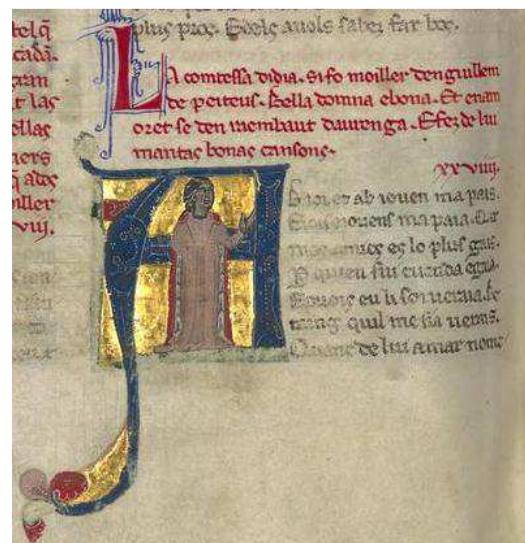 telq̄
cadā.
gran
t las
ellas
ners
viij.
plus pros. E dels auols saber far bos.
LA comtessa didia. si fo moiller denguillem
de peiteus. bella domna ebona. Et enam
oret se den raembaut daurenga. E fez de lui
mantas bonas cansons.
xxviiij.
A b ioi et ab iouen mapais.
E iois iouens mapaia. Car
mos amics es lo plus gais.
P quieu sui cuenda egaia.
E puois eu li son ueraia. be
taing quil me sia uerais.
Quanc de lui amar nome